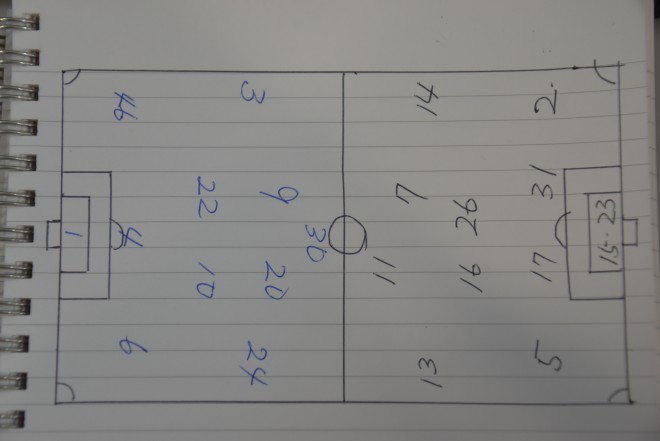 46
3
22
9
1
4
30
10
20
6
24
14
2.
7
26
31
15.23
11
16
17
13
5